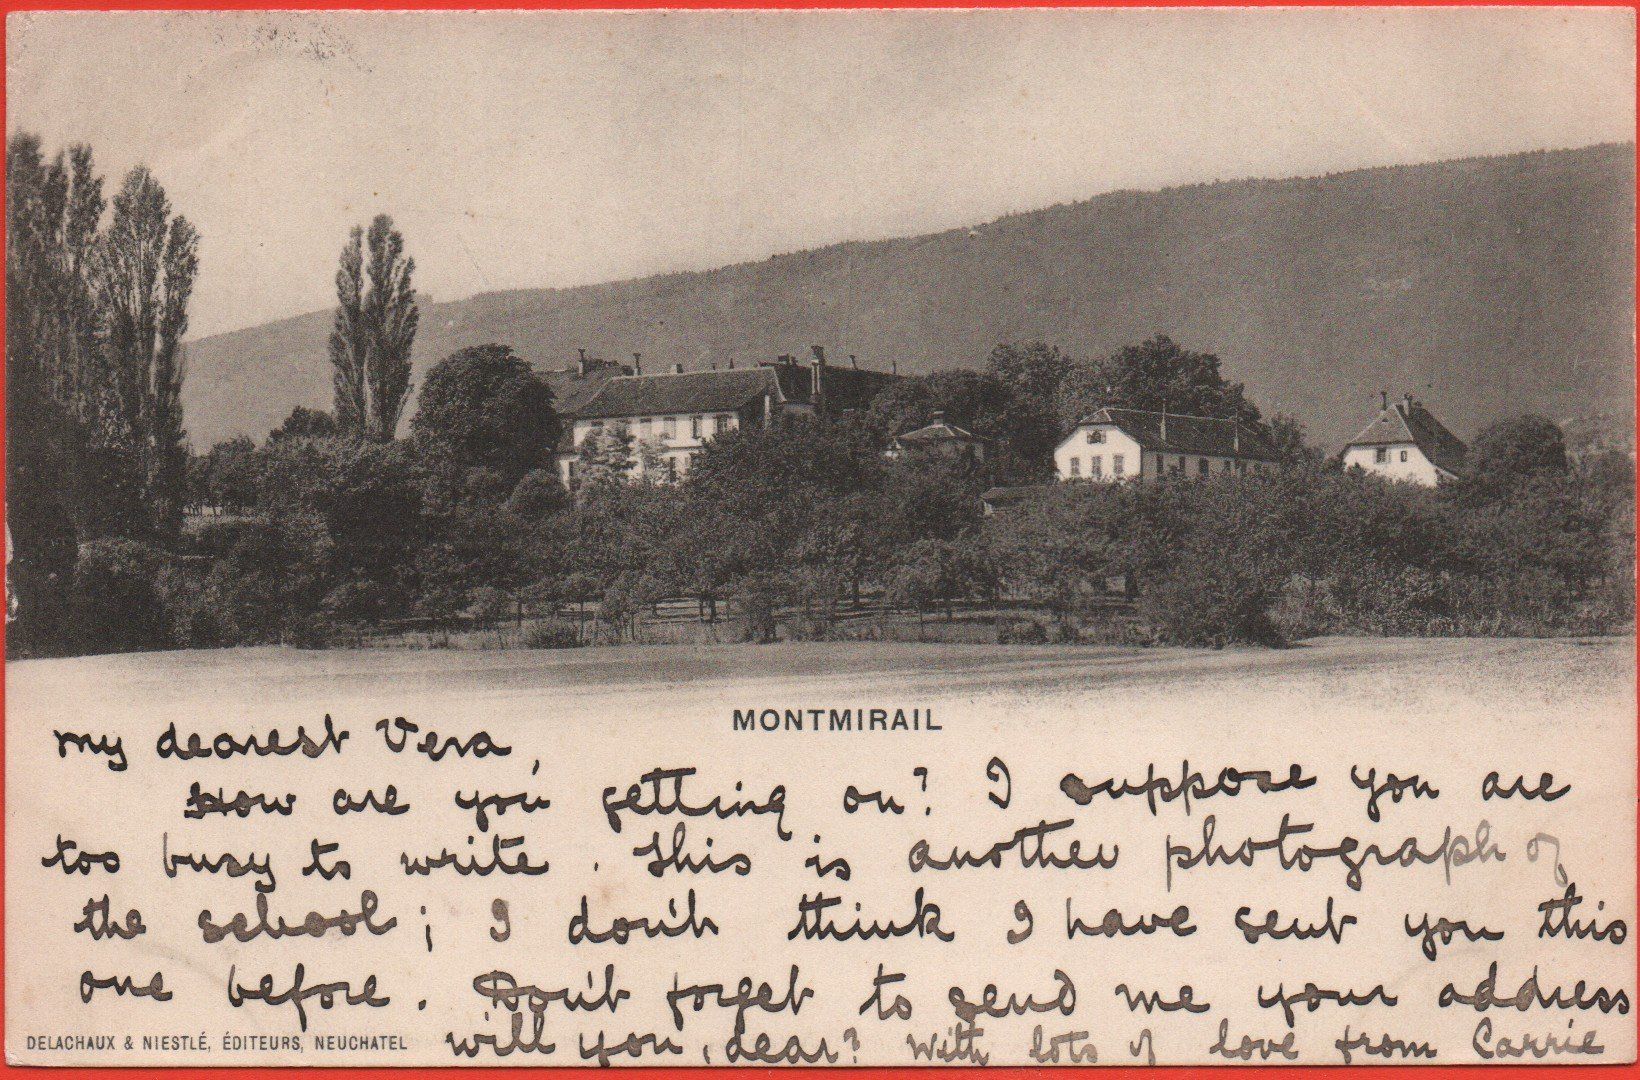 MONTMIRAIL
My dearest Vera,
How are you getting on? I suppose you are
too busy to write. This is another photograph of
the school; I don't think I have sent you this
one before. Don't forget to send me your address
will you, dear? With lots of love from Carrie
DELACHAUX & NIESTLÉ, ÉDITEURS, NEUCHATEL